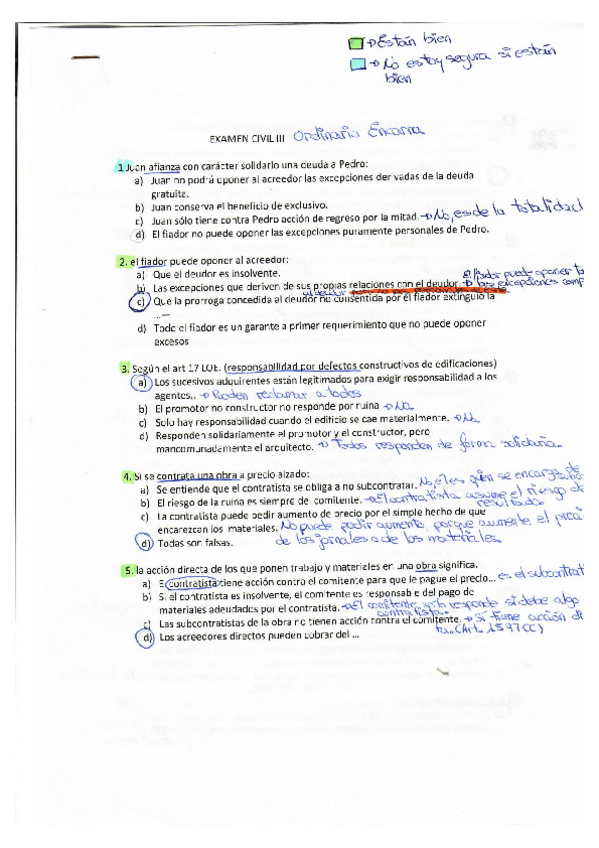 → Están bien
→ No estoy segura si están
bien
EXAMEN CIVIL III Ordinario Encarna
1 Juan afianza con carácter solidario una deuda a Pedro:
a) Juan no podrá oponer al acreedor las excepciones derivadas de la deuda
gratuita.
b) Juan conserva el beneficio de exclusivo.
c) Juan sólo tiene contra Pedro acción de regreso por la mitad. → No, es de la totalidad
d) El fiador no puede oponer las excepciones puramente personales de Pedro.
2. el fiador puede oponer al acreedor:
a) Que el deudor es insolvente.
El fiador puede oponer
b) Las excepciones que deriven de sus propias relaciones con el deudor. → las excepciones
c) Que la prorroga concedida al deudor no consentida por el fiador extinguio la
...—
d) Todo el fiador es un garante a primer requerimiento que no puede oponer
excesos
3. Según el art 17 LOE. (responsabilidad por defectos constructivos de edificaciones)
a) Los sucesivos adquirentes están legitimados para exigir responsabilidad a los
agentes.. → Pueden reclamar a todos
b) El promotor no constructor no responde por ruina → No.
c) Solo hay responsabilidad cuando el edificio se cae materialmente. → No.
d) Responden solidariamente el promotor y el constructor, pero
mancomunadamente el arquitecto. → Todos responden de forma solidaria..
4. Si se contrata una obra a precio alzado:
a) Se entiende que el contratista se obliga a no subcontratar. No, él es quien se encarga de
b) El riesgo de la ruina es siempre del comitente. → El contratista asume el riesgo de
resultado.
c) La contratista puede pedir aumento de precio por el simple hecho de que
encarezcan los materiales. No puede pedir aumento porque aumente el precio
de los jornales o de los materiales.
d) Todas son falsas.
5. la acción directa de los que ponen trabajo y materiales en una obra significa.
a) El contratista tiene acción contra el comitente para que le pague el precio... es el subcontrat
b) Si el contratista es insolvente, el comitente es responsable del pago de
materiales adeudados por el contratista. → El comitente responde si debe algo
contratista.
c) Las subcontratistas de la obra no tienen acción contra el comitente. → Sí tiene acción
(Art. 1597 CC)
d) Los acreedores directos pueden cobrar del ...